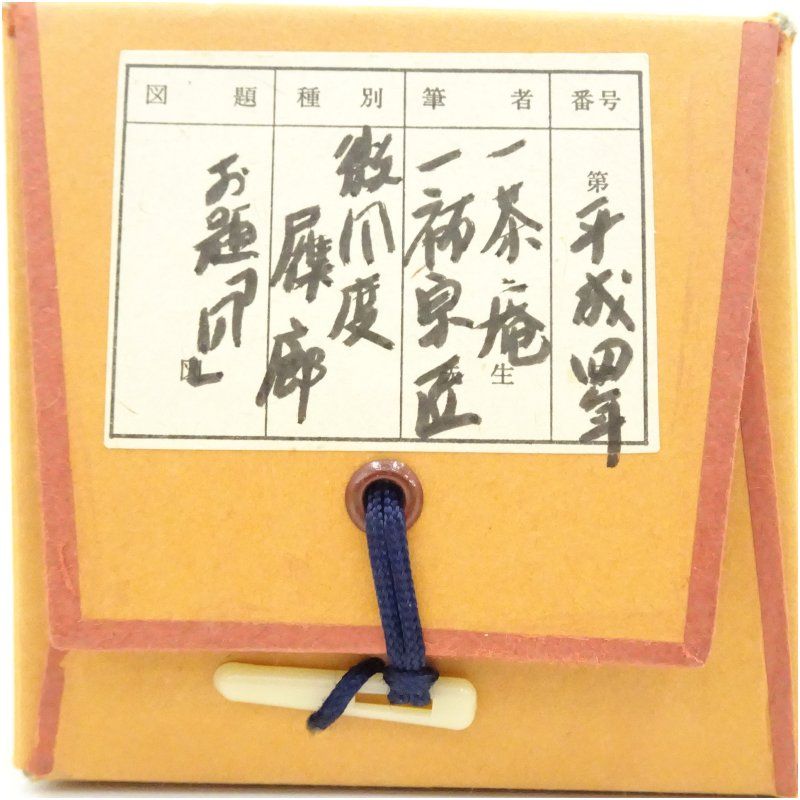 番号
第
平成四年
筆者
一茶庵
一祐宗匠
生
種別
微風度
屧廊
図題
お題「風」